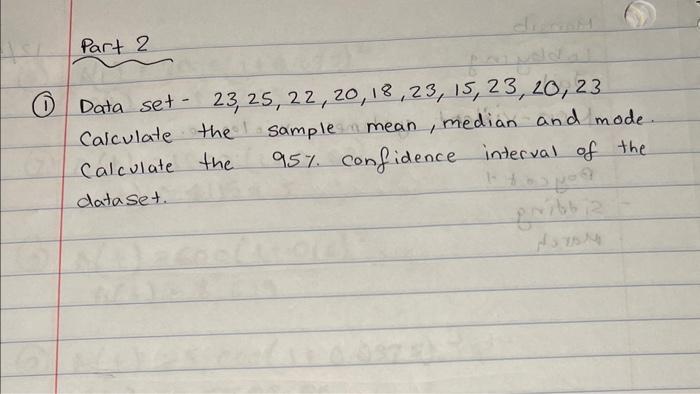 Part 2
① Data set - 23, 25, 22, 20, 18, 23, 15, 23, 20, 23
Calculate the sample mean, median and mode.
Calculate the 95% confidence interval of the
dataset.